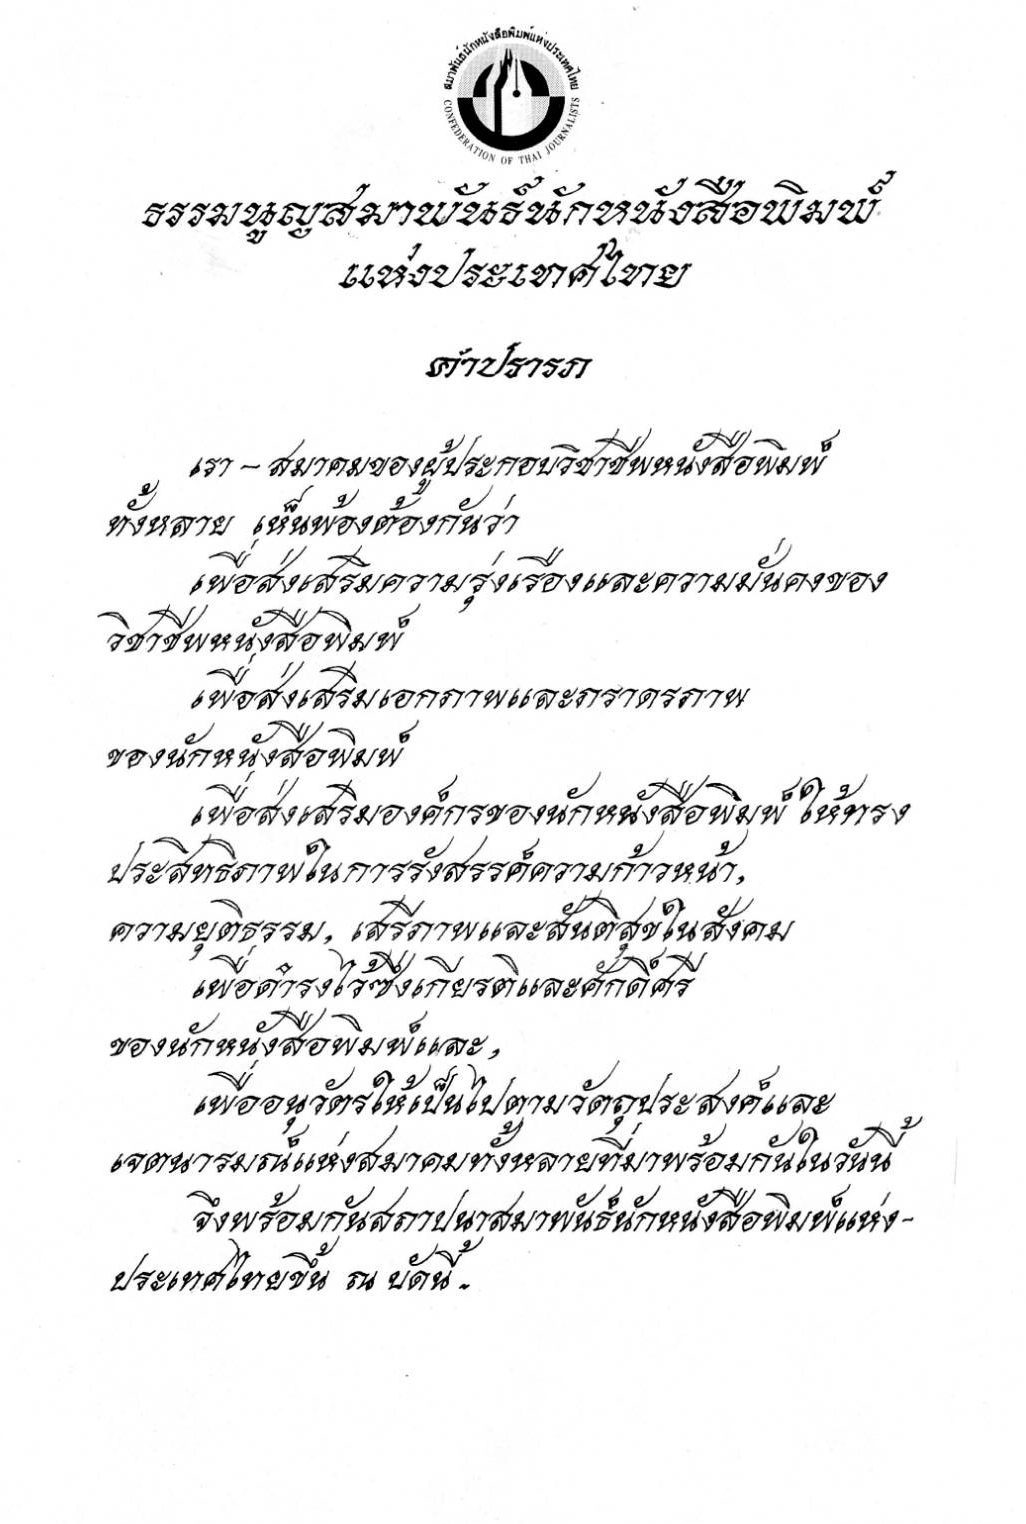 สมาพันธ์นักหนังสือพิมพ์แห่งประเทศไทย
CONFEDERATION OF THAI JOURNALISTS
ธรรมนูญสมาพันธ์นักหนังสือพิมพ์
แห่งประเทศไทย
คำปรารภ
เรา - สมาคมของผู้ประกอบวิชาชีพหนังสือพิมพ์
ทั้งหลาย เห็นพ้องต้องกันว่า
เพื่อส่งเสริมความรุ่งเรืองและความมั่นคงของ
วิชาชีพหนังสือพิมพ์
เพื่อส่งเสริมเอกภาพและภราดรภาพ
ของนักหนังสือพิมพ์
เพื่อส่งเสริมองค์กรของนักหนังสือพิมพ์ ให้ทรง
ประสิทธิภาพในการรังสรรค์ความก้าวหน้า,
ความยุติธรรม, เสรีภาพและสันติสุขในสังคม
เพื่อดำรงไว้ซึ่งเกียรติและศักดิ์ศรี
ของนักหนังสือพิมพ์และ,
เพื่ออนุวัตรให้เป็นไปตามวัตถุประสงค์และ
เจตนารมณ์แห่งสมาคมทั้งหลายที่มาพร้อมกันในวันนี้
จึงพร้อมกันสถาปนาสมาพันธ์นักหนังสือพิมพ์แห่ง-
ประเทศไทยขึ้น ณ บัดนี้.